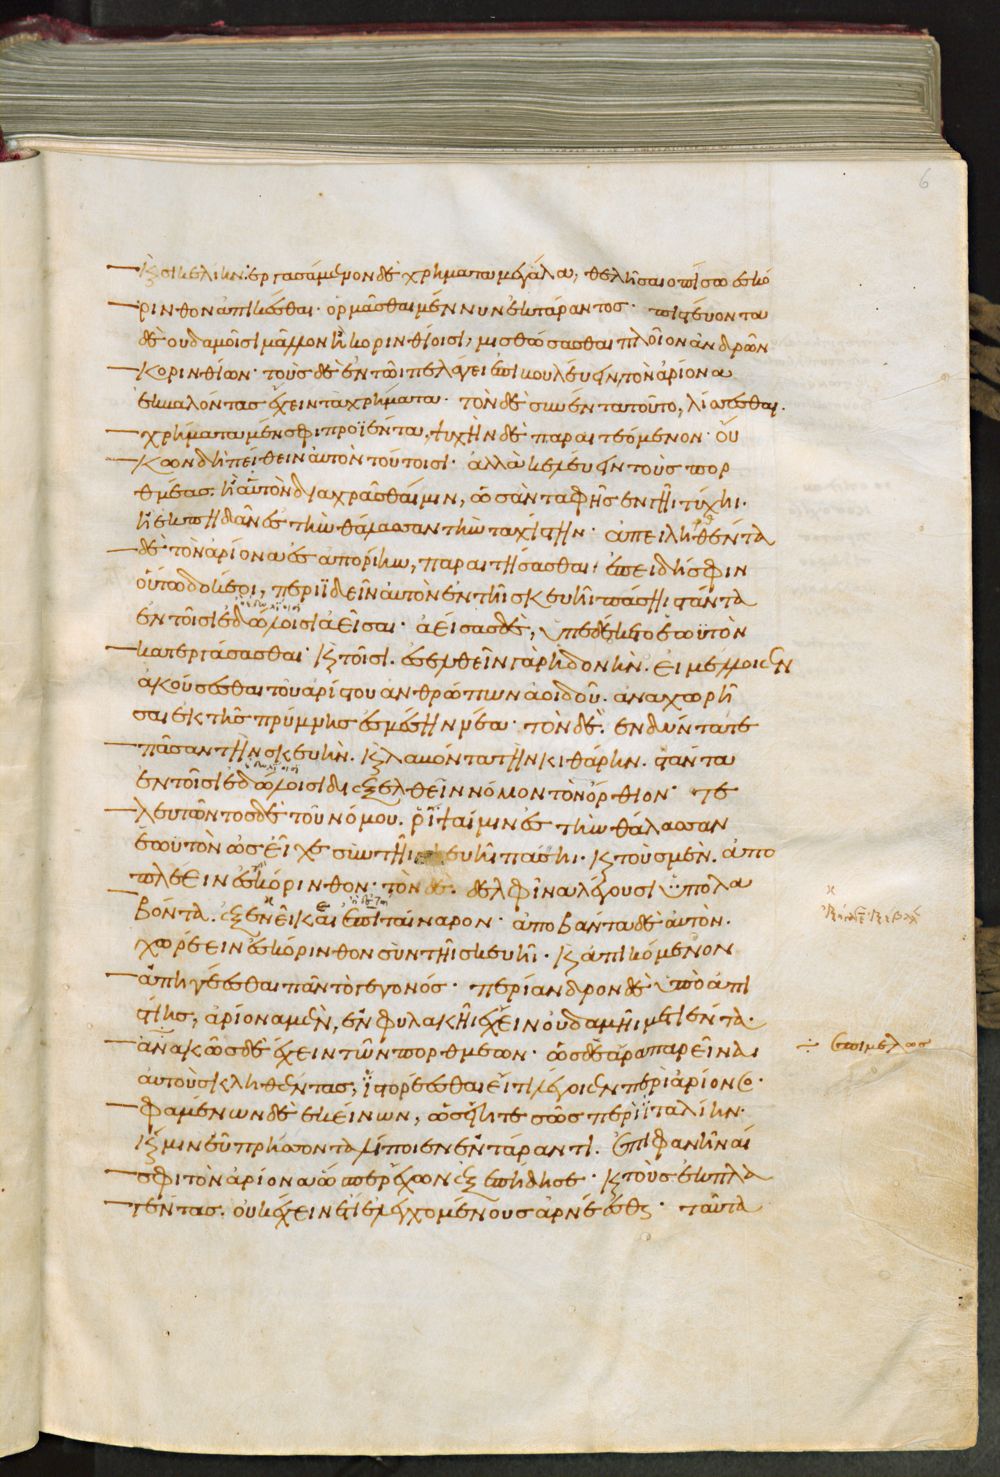 6
κ(αὶ) σικελίην· ἐργασάμενον δὲ χρήματα μεγάλα, θελῆσαι ὀπίσω ἐς κό
ρινθον ἀπικέσθαι· ὁρμᾶσθαι μέν νυν ἐκ τάραντος· πιστεύοντα
δὲ οὐδαμοῖσι μᾶλλον ἢ κορινθίοισι, μισθώσασθαι πλοῖον ἀνδρῶν
κορινθίων· τοὺς δὲ ἐν τῶι πελάγει ἐπιβουλεύειν, τὸν ἀρίονα
ἐκβαλόντας ἔχειν τὰ χρήματα· τὸν δὲ συνέντα τοῦτο, λίσσεσθαι·
χρήματα μέν σφι προϊέντα, ψυχὴν δὲ παραιτεόμενον· οὔ
κων δὴ πείθειν αὐτὸν τούτοισι· ἀλλὰ κελεύειν τοὺς πορ
θμέας· ἢ αὐτὸν διαχρᾶσθαί μιν, ὡς ἂν ταφῆς ἐν γῆι τύχηι·
ἢ ἐκπηδᾶν ἐς τὴν θάλασσαν τὴν ταχίστην· ἀπειληθέντα
δὲ τὸν ἀρίονα ἐς ἀπορίην, παραιτήσασθαι· ἐπειδή σφιν
οὕτω δοκέοι, περιϊδεῖν αὐτὸν ἐν τῆι σκευῆι πάσηι στάντα
ἐν τοῖσι ἑδωλίοισι ἀεῖσαι· ἀείσας δὲ, ὑπεδέκετο ἑωϋτὸν
κατεργάσασθαι· κ(αὶ) τοῖσι· ἐσελθεῖν γὰρ ἡδονὴν· εἰ μέλλοιεν
ἀκούσεσθαι τοῦ ἀρίστου ἀνθρώπων ἀοιδοῦ· ἀναχωρῆ
σαι ἐκ τῆς πρύμνης ἐς μέσην νέα· τὸν δὲ· ἐνδύντα τε
πᾶσαν τὴν σκευὴν· κ(αὶ) λαβόντα τὴν κιθάρην· στάντα
ἐν τοῖσι ἑδωλίοισι διεξελθεῖν νόμον τὸν ὄρθιον· τε
λευτῶντος δὲ τοῦ νόμου· ῥῖψαί μιν ἐς τὴν θάλασσαν
ἑωϋτὸν ὡς εἶχε σὺν τῆι σκευῆι πάσηι· κ(αὶ) τοὺς μὲν· ἀπο
πλέειν ἐς κόρινθον· τὸν δὲ· δελφῖνα λέγουσι ὑπολα
βόντα· ἐξενεῖκαι ἐπὶ ταίναρον· ἀποβάντα δὲ αὐτὸν·
χωρέειν ἐς κόρινθον σὺν τῆι σκευῆι· κ(αὶ) ἀπικόμενον
ἀπηγέεσθαι πᾶν τὸ γεγονός· περίανδρον δὲ ὑπὸ ἀπι
στίης, ἀρίονα μὲν, ἐν φυλακῆι ἔχειν οὐδαμῆι μετιέντα·
ἀνακῶς δὲ ἔχειν τῶν πορθμέων· ὡς δὲ ἄρα παρεῖναι
αὐτοὺς κληθέντας, ἱστορέεσθαι εἴ τι λέγοιεν περὶ ἀρίονος·
φαμένων δὲ ἐκείνων, ὡς εἴη τε σῶς περὶ ἰταλίην·
κ(αί) μιν εὖ πρήσσοντα λίποιεν ἐν τάραντι· ἐπιφανῆναί
σφι τὸν ἀρίονα ὥσπερ ἔχων ἐξεπήδησε· κ(αὶ) τοὺς ἐκπλα
γέντας· οὐκ ἔχειν ἔτι ἐλεγχομένους ἀρνέεσθαι· ταῦτα
÷ ἐπιμελῶς